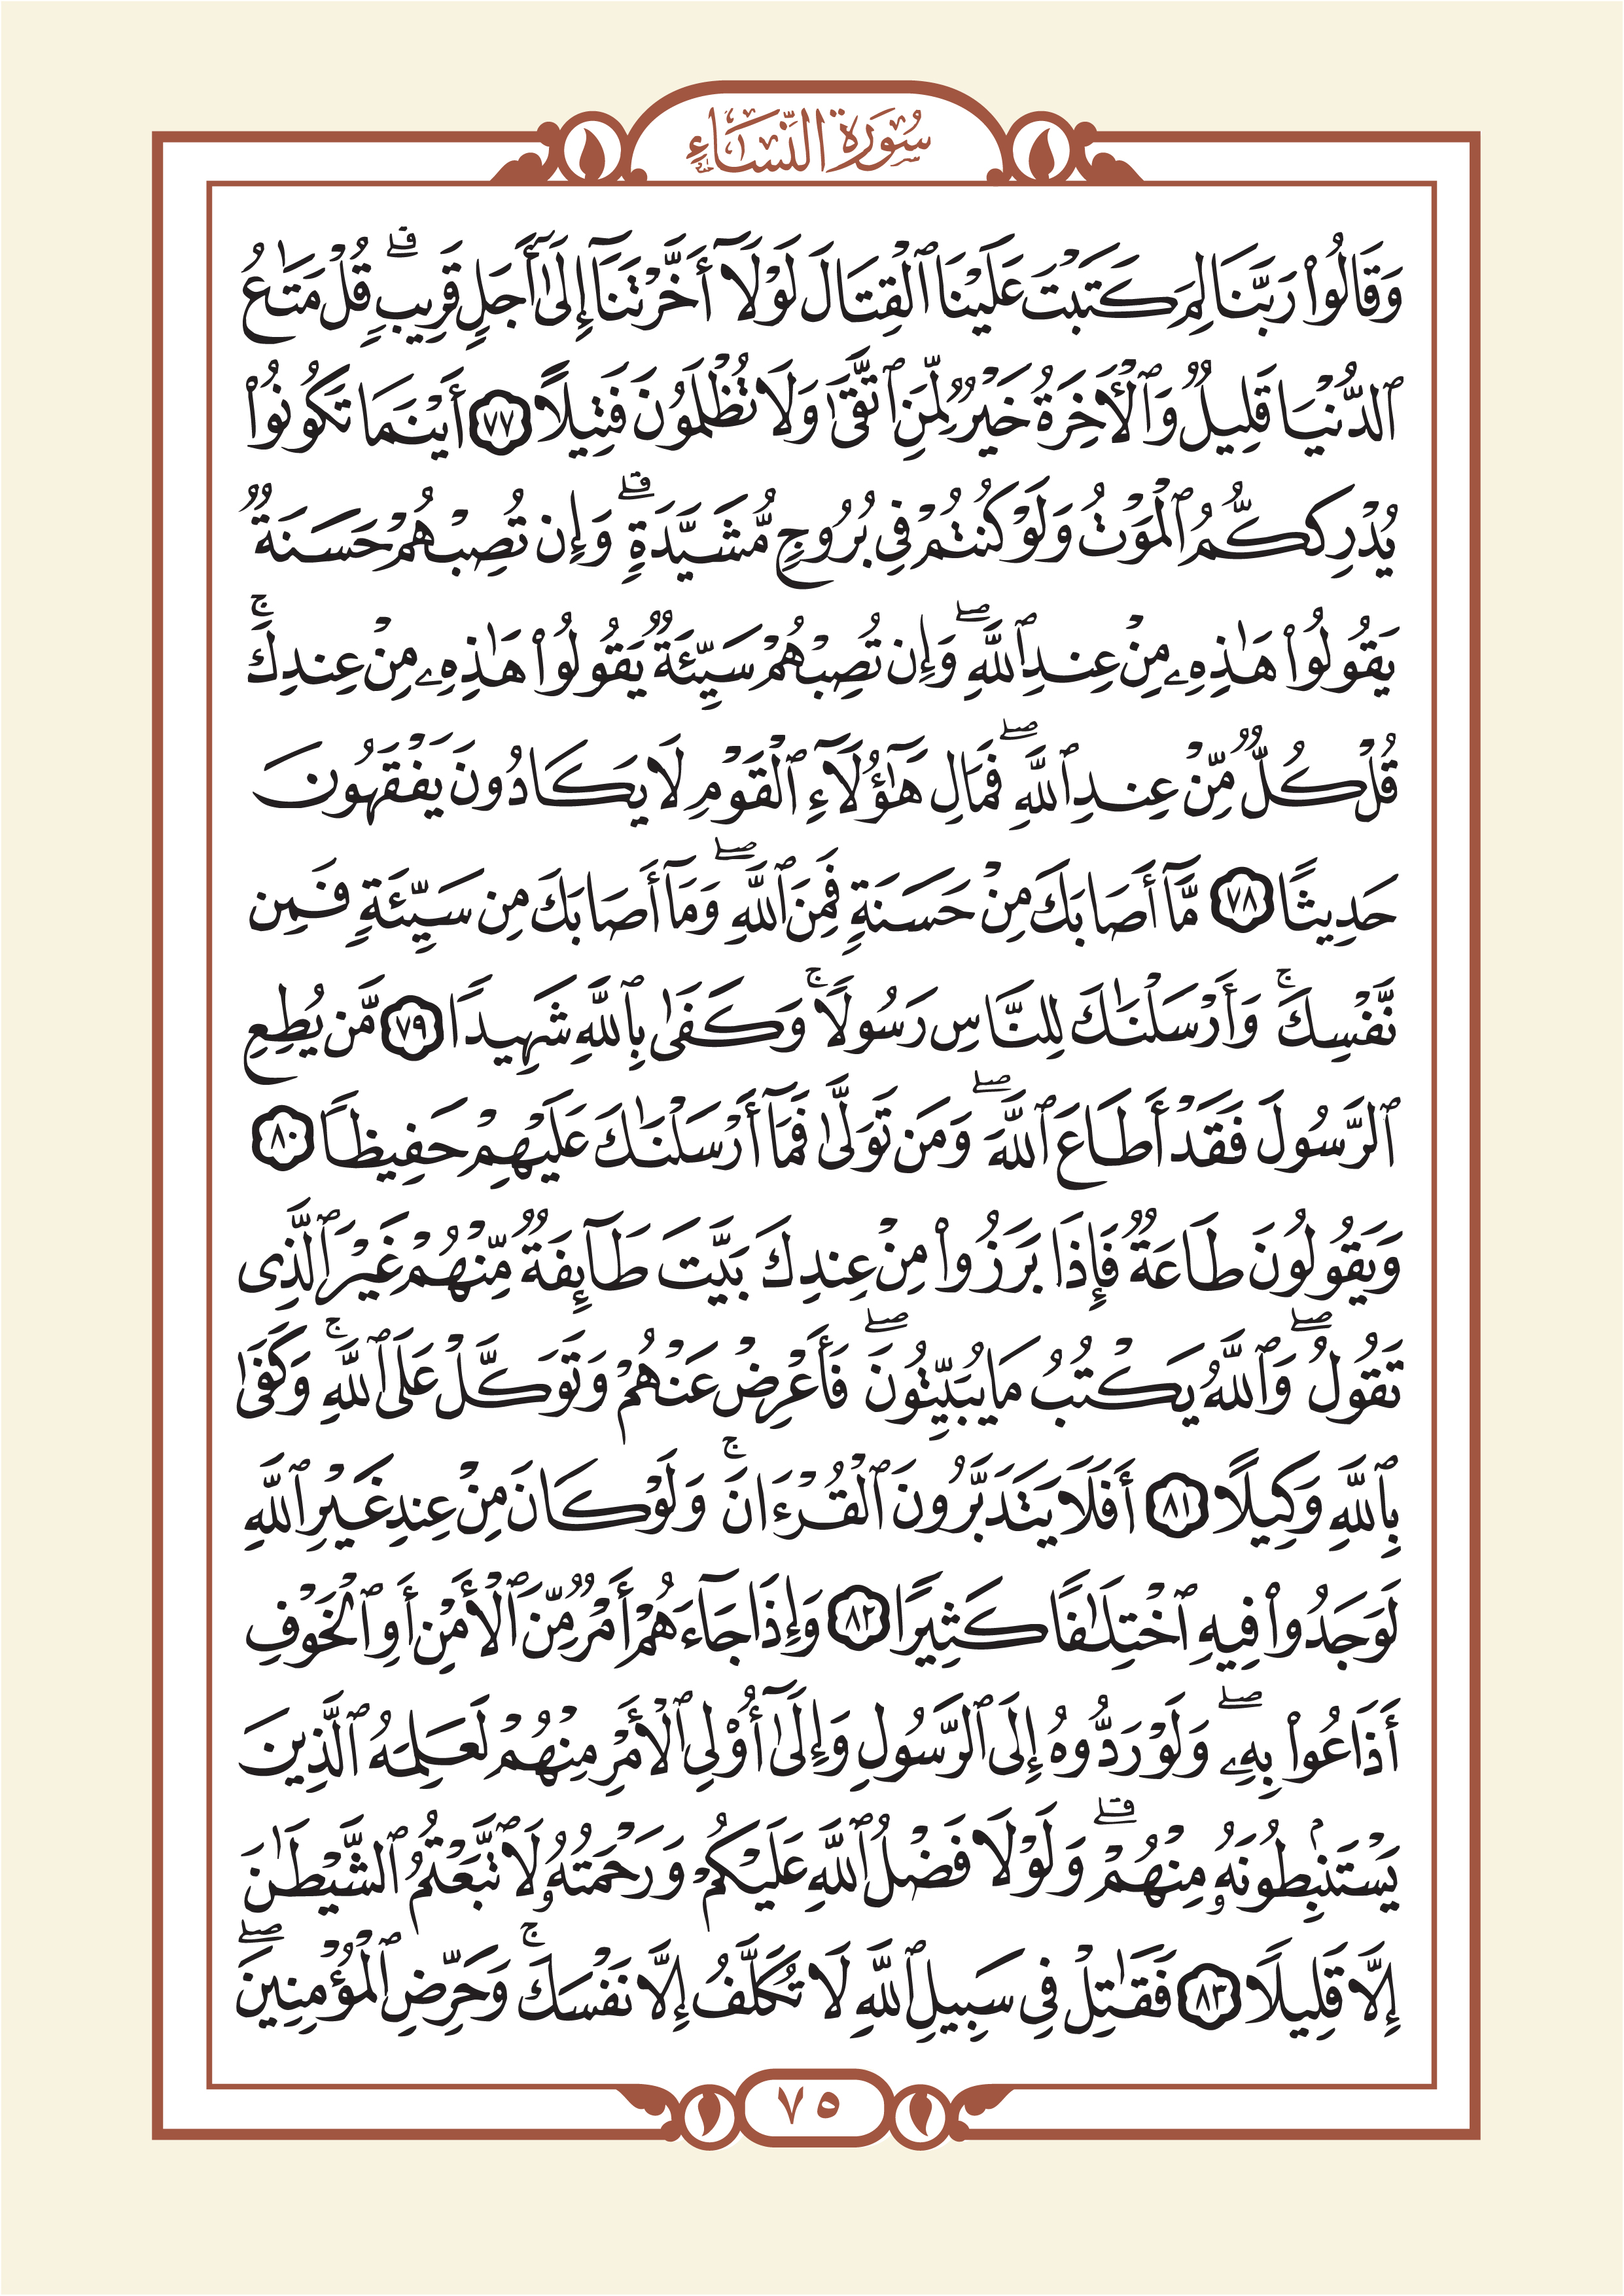 سُورَةُ النِّسَاءِ
وَقَالُوا۟ رَبَّنَا لِمَ كَتَبْتَ عَلَيْنَا ٱلْقِتَالَ لَوْلَآ أَخَّرْتَنَآ إِلَىٰٓ أَجَلٍ قَرِيبٍ ۗ قُلْ مَتَـٰعُ
ٱلدُّنْيَا قَلِيلٌ وَٱلْأَخِرَةُ خَيْرٌ لِّمَنِ ٱتَّقَىٰ وَلَا تُظْلَمُونَ فَتِيلًا ٧٧ أَيْنَمَا تَكُونُوا۟
يُدْرِككُّمُ ٱلْمَوْتُ وَلَوْ كُنتُمْ فِى بُرُوجٍ مُّشَيَّدَةٍ ۗ وَإِن تُصِبْهُمْ حَسَنَةٌ
يَقُولُوا۟ هَـٰذِهِۦ مِنْ عِندِ ٱللَّهِ ۖ وَإِن تُصِبْهُمْ سَيِّئَةٌ يَقُولُوا۟ هَـٰذِهِۦ مِنْ عِندِكَ ۚ
قُلْ كُلٌّ مِّنْ عِندِ ٱللَّهِ ۖ فَمَالِ هَـٰٓؤُلَآءِ ٱلْقَوْمِ لَا يَكَادُونَ يَفْقَهُونَ
حَدِيثًا ٧٨ مَّآ أَصَابَكَ مِنْ حَسَنَةٍ فَمِنَ ٱللَّهِ ۖ وَمَآ أَصَابَكَ مِن سَيِّئَةٍ فَمِن
نَّفْسِكَ ۚ وَأَرْسَلْنَـٰكَ لِلنَّاسِ رَسُولًا ۚ وَكَفَىٰ بِٱللَّهِ شَهِيدًا ٧٩ مَّن يُطِعِ
ٱلرَّسُولَ فَقَدْ أَطَاعَ ٱللَّهَ ۖ وَمَن تَوَلَّىٰ فَمَآ أَرْسَلْنَـٰكَ عَلَيْهِمْ حَفِيظًا ٨٠
وَيَقُولُونَ طَاعَةٌ فَإِذَا بَرَزُوا۟ مِنْ عِندِكَ بَيَّتَ طَآئِفَةٌ مِّنْهُمْ غَيْرَ ٱلَّذِى
تَقُولُ ۖ وَٱللَّهُ يَكْتُبُ مَا يُبَيِّتُونَ ۖ فَأَعْرِضْ عَنْهُمْ وَتَوَكَّلْ عَلَى ٱللَّهِ ۚ وَكَفَىٰ
بِٱللَّهِ وَكِيلًا ٨١ أَفَلَا يَتَدَبَّرُونَ ٱلْقُرْءَانَ ۚ وَلَوْ كَانَ مِنْ عِندِ غَيْرِ ٱللَّهِ
لَوَجَدُوا۟ فِيهِ ٱخْتِلَـٰفًا كَثِيرًا ٨٢ وَإِذَا جَآءَهُمْ أَمْرٌ مِّنَ ٱلْأَمْنِ أَوِ ٱلْخَوْفِ
أَذَاعُوا۟ بِهِۦ ۖ وَلَوْ رَدُّوهُ إِلَى ٱلرَّسُولِ وَإِلَىٰٓ أُو۟لِى ٱلْأَمْرِ مِنْهُمْ لَعَلِمَهُ ٱلَّذِينَ
يَسْتَنۢبِطُونَهُۥ مِنْهُمْ ۗ وَلَوْلَا فَضْلُ ٱللَّهِ عَلَيْكُمْ وَرَحْمَتُهُۥ لَٱتَّبَعْتُمُ ٱلشَّيْطَـٰنَ
إِلَّا قَلِيلًا ٨٣ فَقَـٰتِلْ فِى سَبِيلِ ٱللَّهِ لَا تُكَلَّفُ إِلَّا نَفْسَكَ ۚ وَحَرِّضِ ٱلْمُؤْمِنِينَ ۖ
٧٥